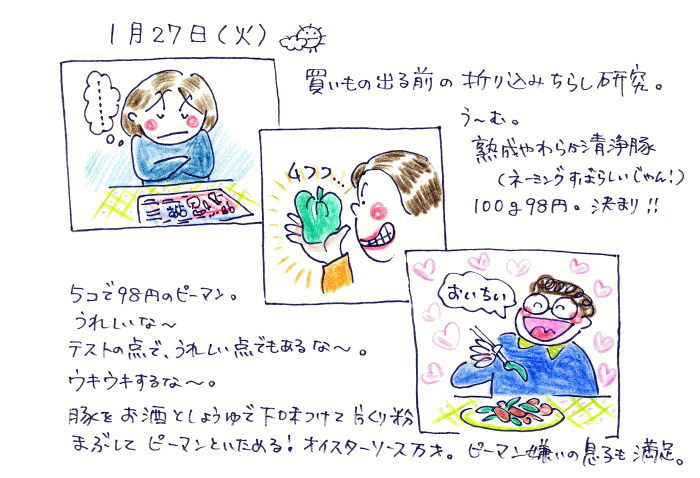 1月27日(火)
買いもの出る前の折り込みちらし研究。
う〜む。
熟成やわらか清浄豚
(ネーミングすばらしいじゃん!)
100g98円。決まり!!
ムフフ…
おいちい
5コで98円のピーマン。
うれしいな〜
テストの点で、うれしい点でもあるな〜。
ウキウキするな〜。
豚をお酒としょうゆで下味つけて片くり粉
まぶして ピーマンといためる!オイスターソース万才。ピーマン嫌いの息子も満足。